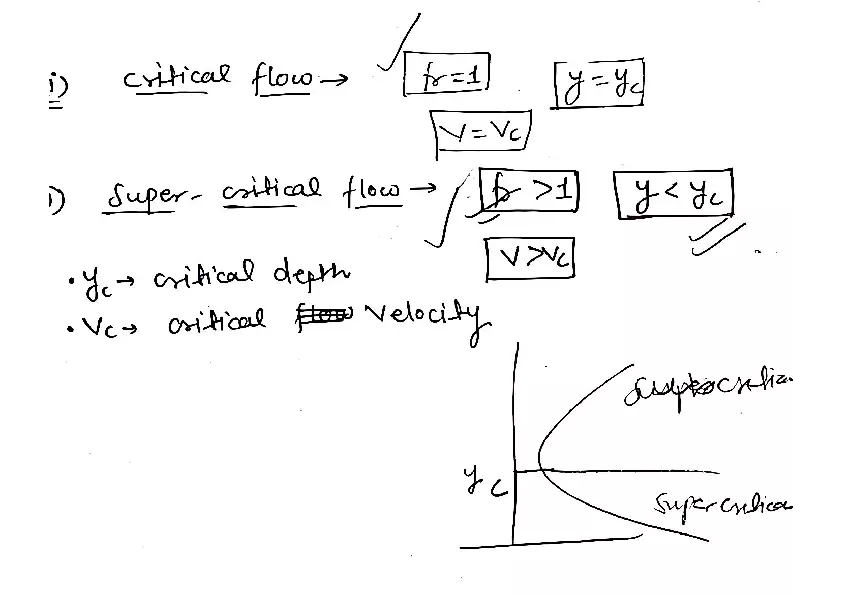 i) critical flow → fr=1 y=yc
V=Vc
i) Super-critical flow → fr >1 y<yc
V>Vc
• yc → critical depth
• Vc → critical velocity
yc
Supercritica